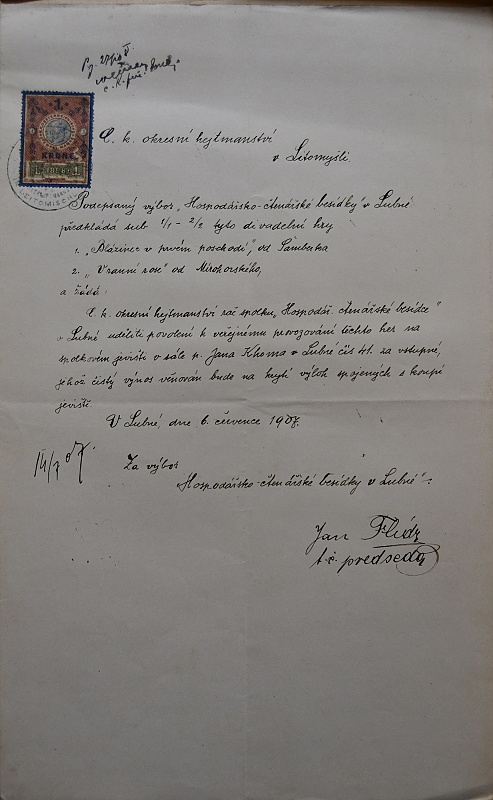 1
KRONE
LEITOMISCHL
C. k. okresní hejtmanství
v Litomyšli.
Podepsaný výbor „Hospodářsko-čtenářské besídky" v Lubné
předkládá sub 1/1 - 2/2 tyto divadelní hry
1. „Blázinec v prvém poschodí", od Šamberka
2. „V ranní rose" od Mirohorského,
a žádá:
C. k. okresní hejtmanství rač spolku „Hospodář. čtenářské besídce"
v Lubné uděliti povolení k veřejnému provozování těchto her na
spolkovém jevišti v sále p. Jana Khoma v Lubné čís 41. za vstupné,
jehož čistý výnos věnován bude na krytí výloh spojených s koupí
jeviště.
V Lubné, dne 6. července 1907.
Za výbor
„Hospodářsko-čtenářské besídky v Lubné":
Jan Flídr
t. č. předseda